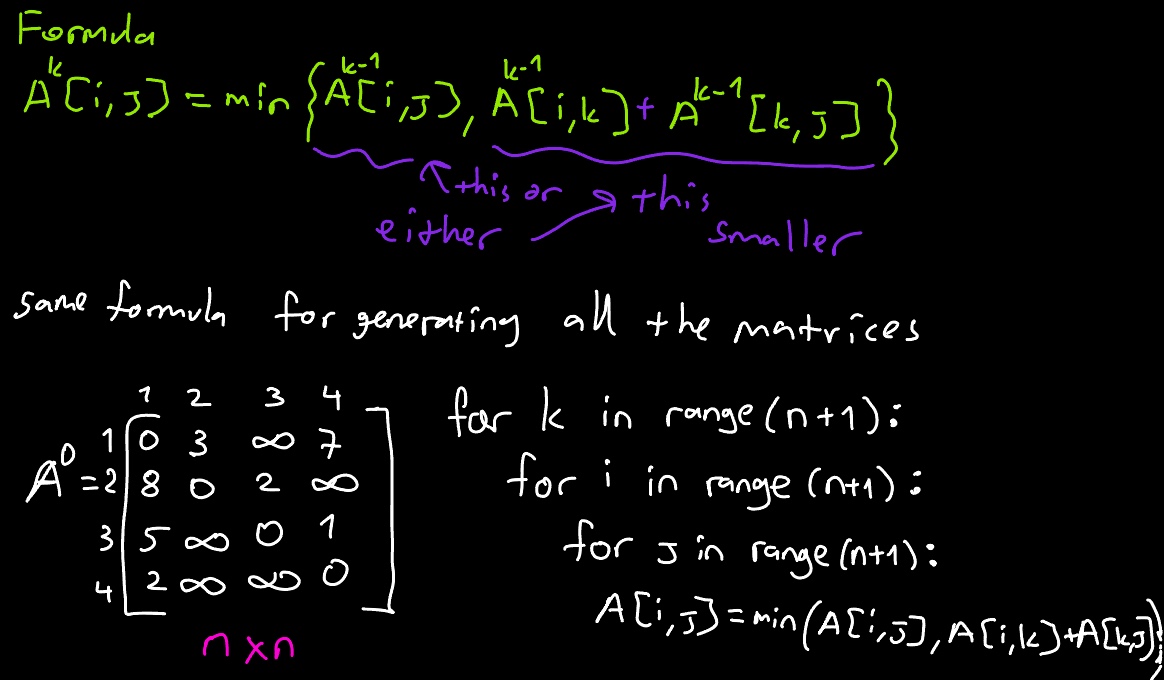 Formula
A^k[i,j] = min{A^k-1[i,j], A^k-1[i,k] + A^k-1[k,j]}
this or this
either smaller
same formula for generating all the matrices
1 2 3 4
1 0 3 ∞ 7
A^0 = 2 8 0 2 ∞
3 5 ∞ 0 1
4 2 ∞ ∞ 0
n x n
for k in range(n+1):
for i in range(n+1):
for j in range(n+1):
A[i,j] = min(A[i,j], A[i,k]+A[k,j]);